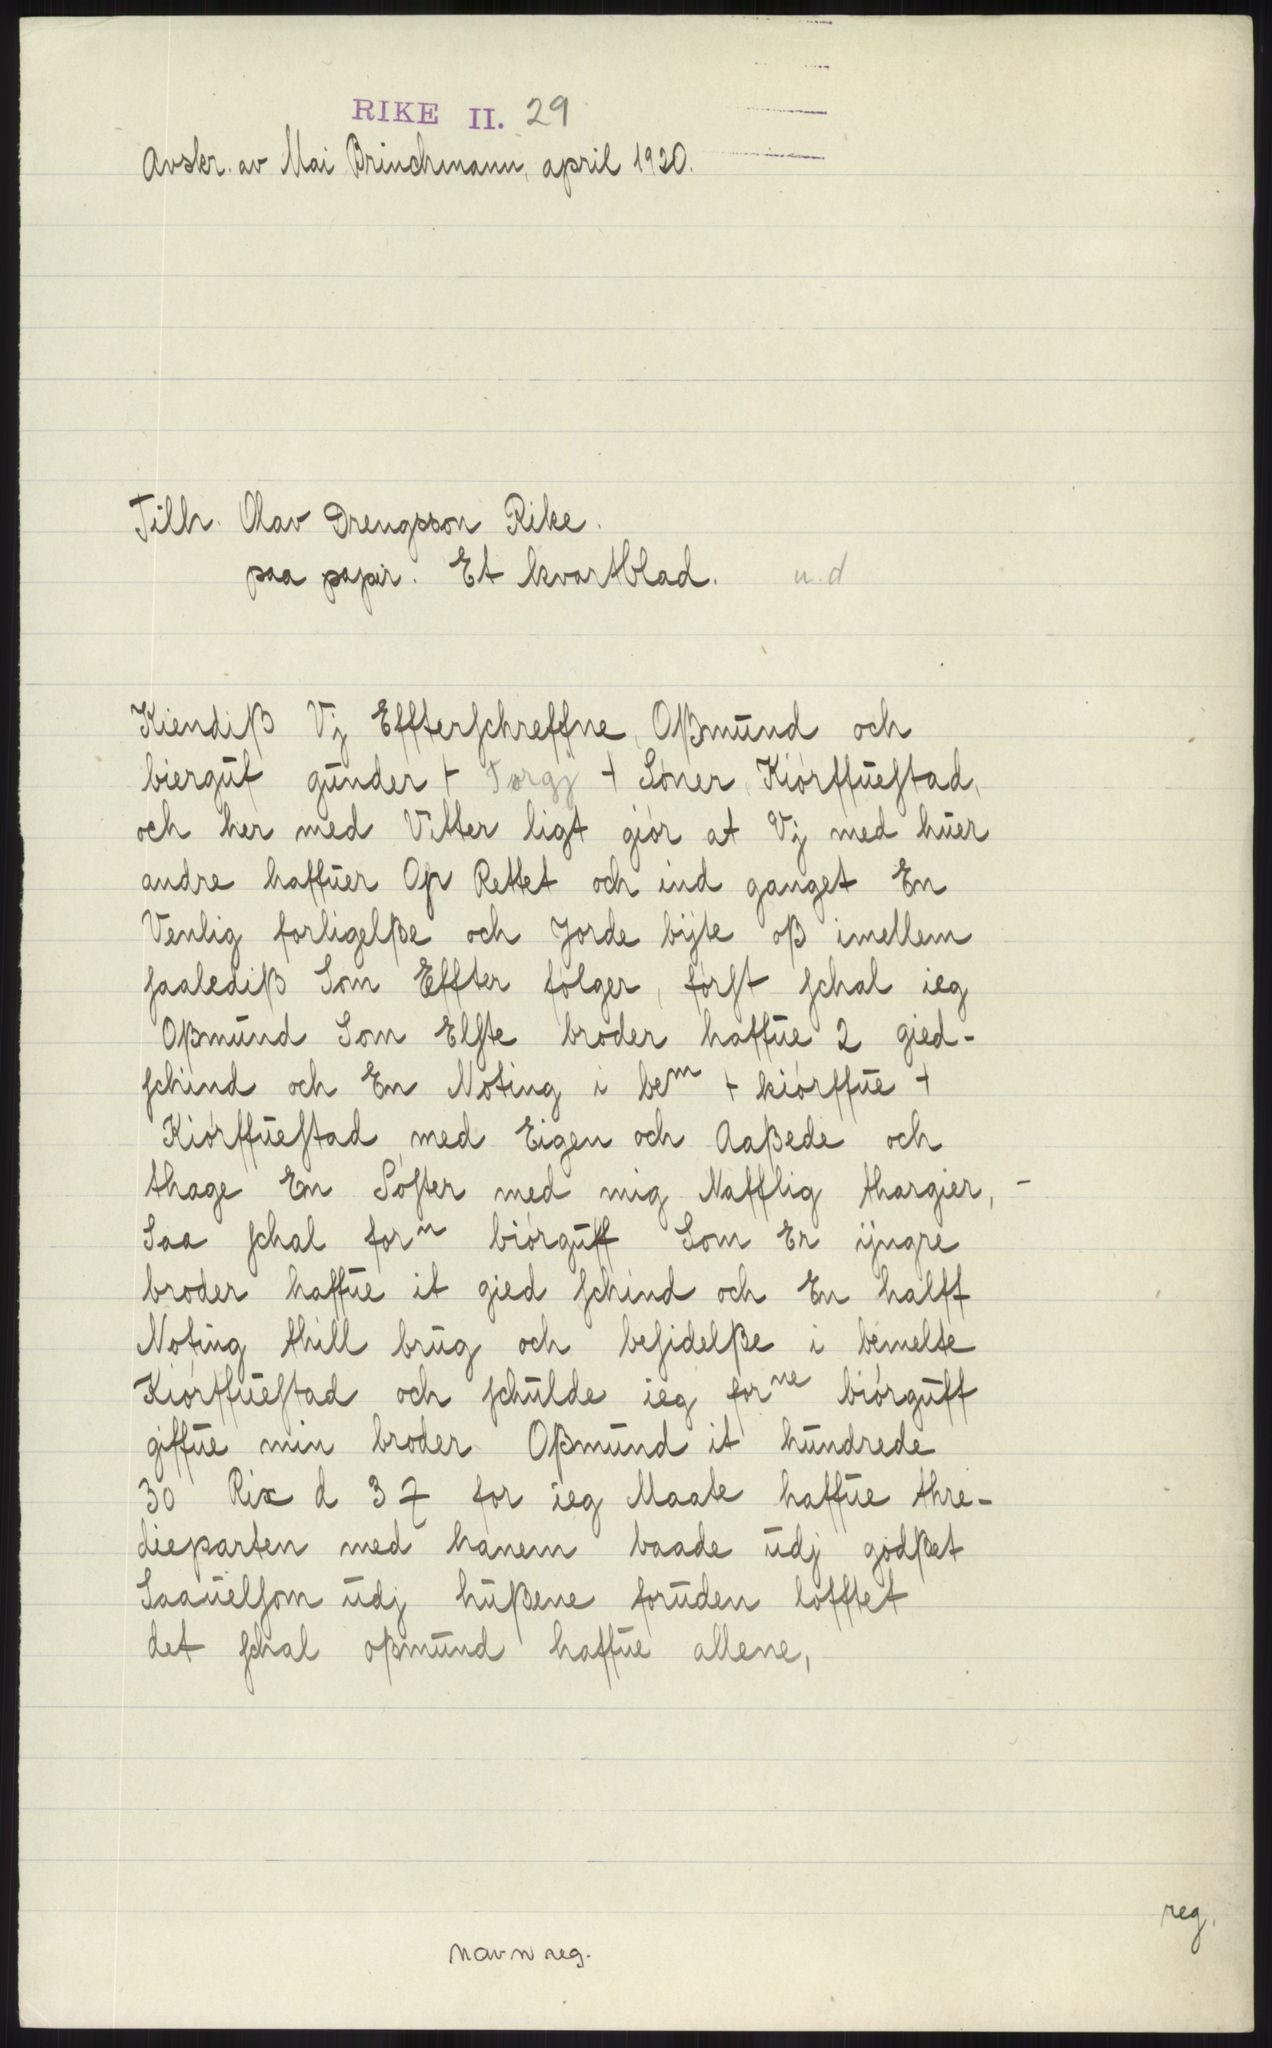 RIKE II. 29
Avskr. av Mai Brinchmann, april 1920.
Tilh. Olav Drengsson Rike.
paa papir. Et kvartblad. u.d
Kiendiß Vj Effterschreffne, Oßmund och
biergut gunder + Torgj + Sóner, Kiórffuestad,
och her med Vitter ligt giór at Vj med huer
andre haffuer Op Rettet och ind ganget En
Venlig forligelße och Jorde bÿte oß imellem
saalediß Som Effter fólger, fórst schal ieg
Oßmund Som Elste broder haffue 2 gied-
schind och En Nóting i bem + kiórffue +
Kiórffuestad med Eigen och Aaßede och
thage En Sóster med mig Nafflig thargier, -
Saa schal forn biórguff Som Er ÿngre
broder haffue it gied schind och En halff
Nóting thill brug och besidelße i bemelte
Kiórffuestad och schulde ieg forne biórguff
giffue min broder Oßmund it hundrede
30 Rix d 3 ₰ for ieg Maate haffue thre-
dieparten med hanem baade udj godßet
Saauelsom udj hußene foruden lófftet
det schal oßmund haffue allene,
reg.
navnreg.